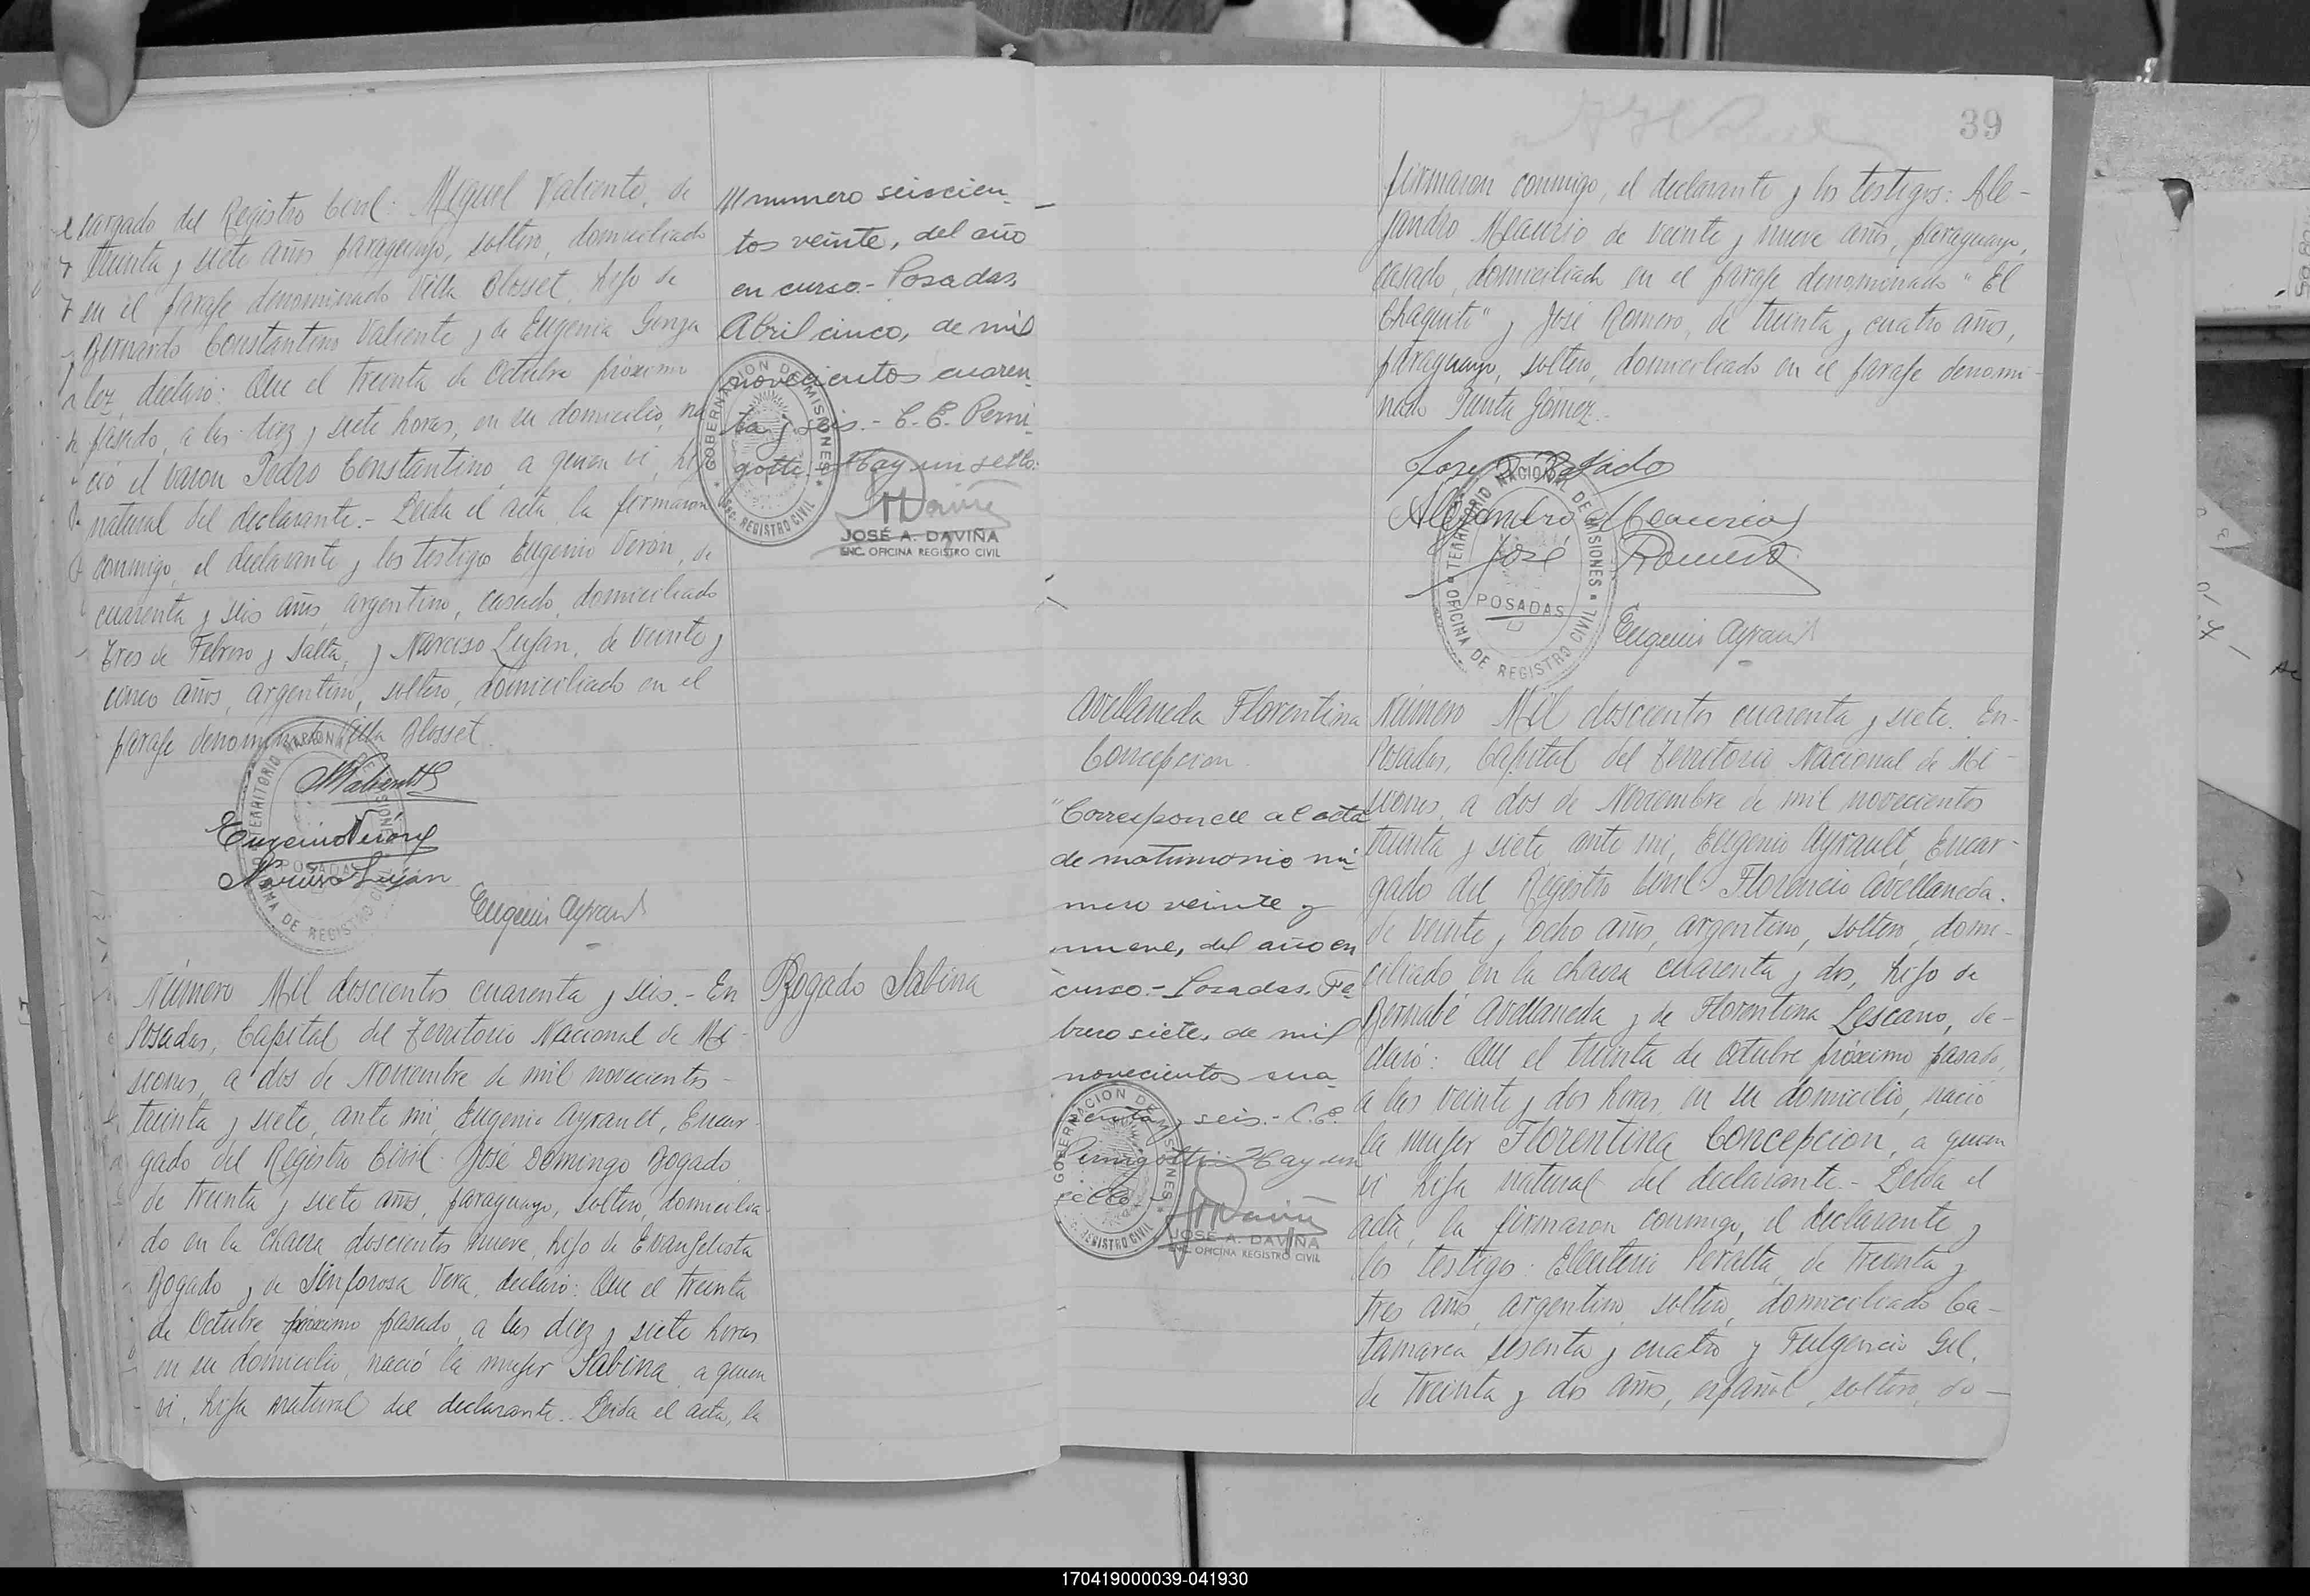 cargado del Registro Civil: Miguel Valiente, de
treinta y siete años, paraguayo, soltero, domiciliado
en el paraje denominado Villa Blosset, hijo de
Bernardo Constantino Valiente y de Eugenia Gonza
lez, declaró: Que el treinta de Octubre próximo
pasado, a las diez y siete horas, en su domicilio, na
ció el varon Pedro Constantino, a quien vi, hijo
natural del declarante.- Leida el acta, la firmaron
conmigo, el declarante y los testigos Eugenio Verón, de
cuarenta y seis años, argentino, casado, domiciliado
Tres de Febrero y Salta, y Narciso Luján, de veinte y
cinco años, argentino, soltero, domiciliado en el
paraje denominado Villa Blosset.
MValiente
Eugenio Verón
Narciso Luján
Eugenio Ayrault
TERRITORIO NACIONAL DE MISIONES
POSADAS
OFICINA DE REGISTRO CIVIL
numero seiscien-
tos veinte, del año
en curso.- Posadas,
Abril cinco, de mil
novecientos cuaren-
ta y seis.- C. E. Perni-
gotti. Hay un sello.
GOBERNACION DE MISIONES
REGISTRO CIVIL
JOSÉ A. DAVIÑA
ENC. OFICINA REGISTRO CIVIL
Bogado Sabina
Número Mil doscientos cuarenta y seis.- En
Posadas, Capital del Territorio Nacional de Mi-
siones, a dos de Noviembre de mil novecientos
treinta y siete, ante mi, Eugenio Ayrault, Encar-
gado del Registro Civil: José Domingo Bogado
de treinta y siete años, paraguayo, soltero, domicilia-
do en la chacra doscientos nueve, hijo de Evangelista
Bogado y de Sinforosa Vera, declaró: Que el treinta
de Octubre próximo pasado, a las diez y siete horas
en su domicilio, nació la mujer Sabina, a quien
vi, hija natural del declarante. Leida el acta, la
39
firmaron conmigo, el declarante y los testigos: Ale-
jandro Meaurio de veinte y nueve años, paraguayo,
casado, domiciliado en el paraje denominado "El
Chaquito" y José Romero, de treinta y cuatro años,
paraguayo, soltero, domiciliado en el paraje denomi-
nado Punta Gómez.
José D. Bogado
Alejandro Meaurio
José Romero
Eugenio Ayrault
TERRITORIO NACIONAL DE MISIONES
POSADAS
OFICINA DE REGISTRO CIVIL
Avellaneda Florentina
Concepcion.
"Corresponde al acta
de matrimonio nú-
mero veinte y
nueve, del año en
curso.- Posadas, Fe-
brero siete, de mil
novecientos cua-
renta y seis.- C. E.
Pernigotti. Hay un
sello
GOBERNACION DE MISIONES
REGISTRO CIVIL
JOSÉ A. DAVIÑA
ENC. OFICINA REGISTRO CIVIL
Número Mil doscientos cuarenta y siete. En-
Posadas, Capital del Territorio Nacional de Mi-
siones, a dos de Noviembre de mil novecientos
treinta y siete, ante mi, Eugenio Ayrault, Encar-
gado del Registro Civil: Florencio Avellaneda.
de veinte y ocho años, argentino, soltero, domi-
ciliado en la chacra cuarenta y dos, hijo de
Bernabé Avellaneda y de Florentina Lescano, de-
claró: Que el treinta de Octubre próximo pasado,
a las veinte y dos horas, en su domicilio, nació
la mujer Florentina Concepcion, a quien
vi hija natural del declarante.- Leida el
acta, la firmaron conmigo, el declarante y
los testigos: Eleuterio Peralta, de treinta y
tres años, argentino, soltero, domiciliado Ca-
tamarca sesenta y cuatro y Fulgencio Gil,
de treinta y dos años, español, soltero, do-
170419000039-041930